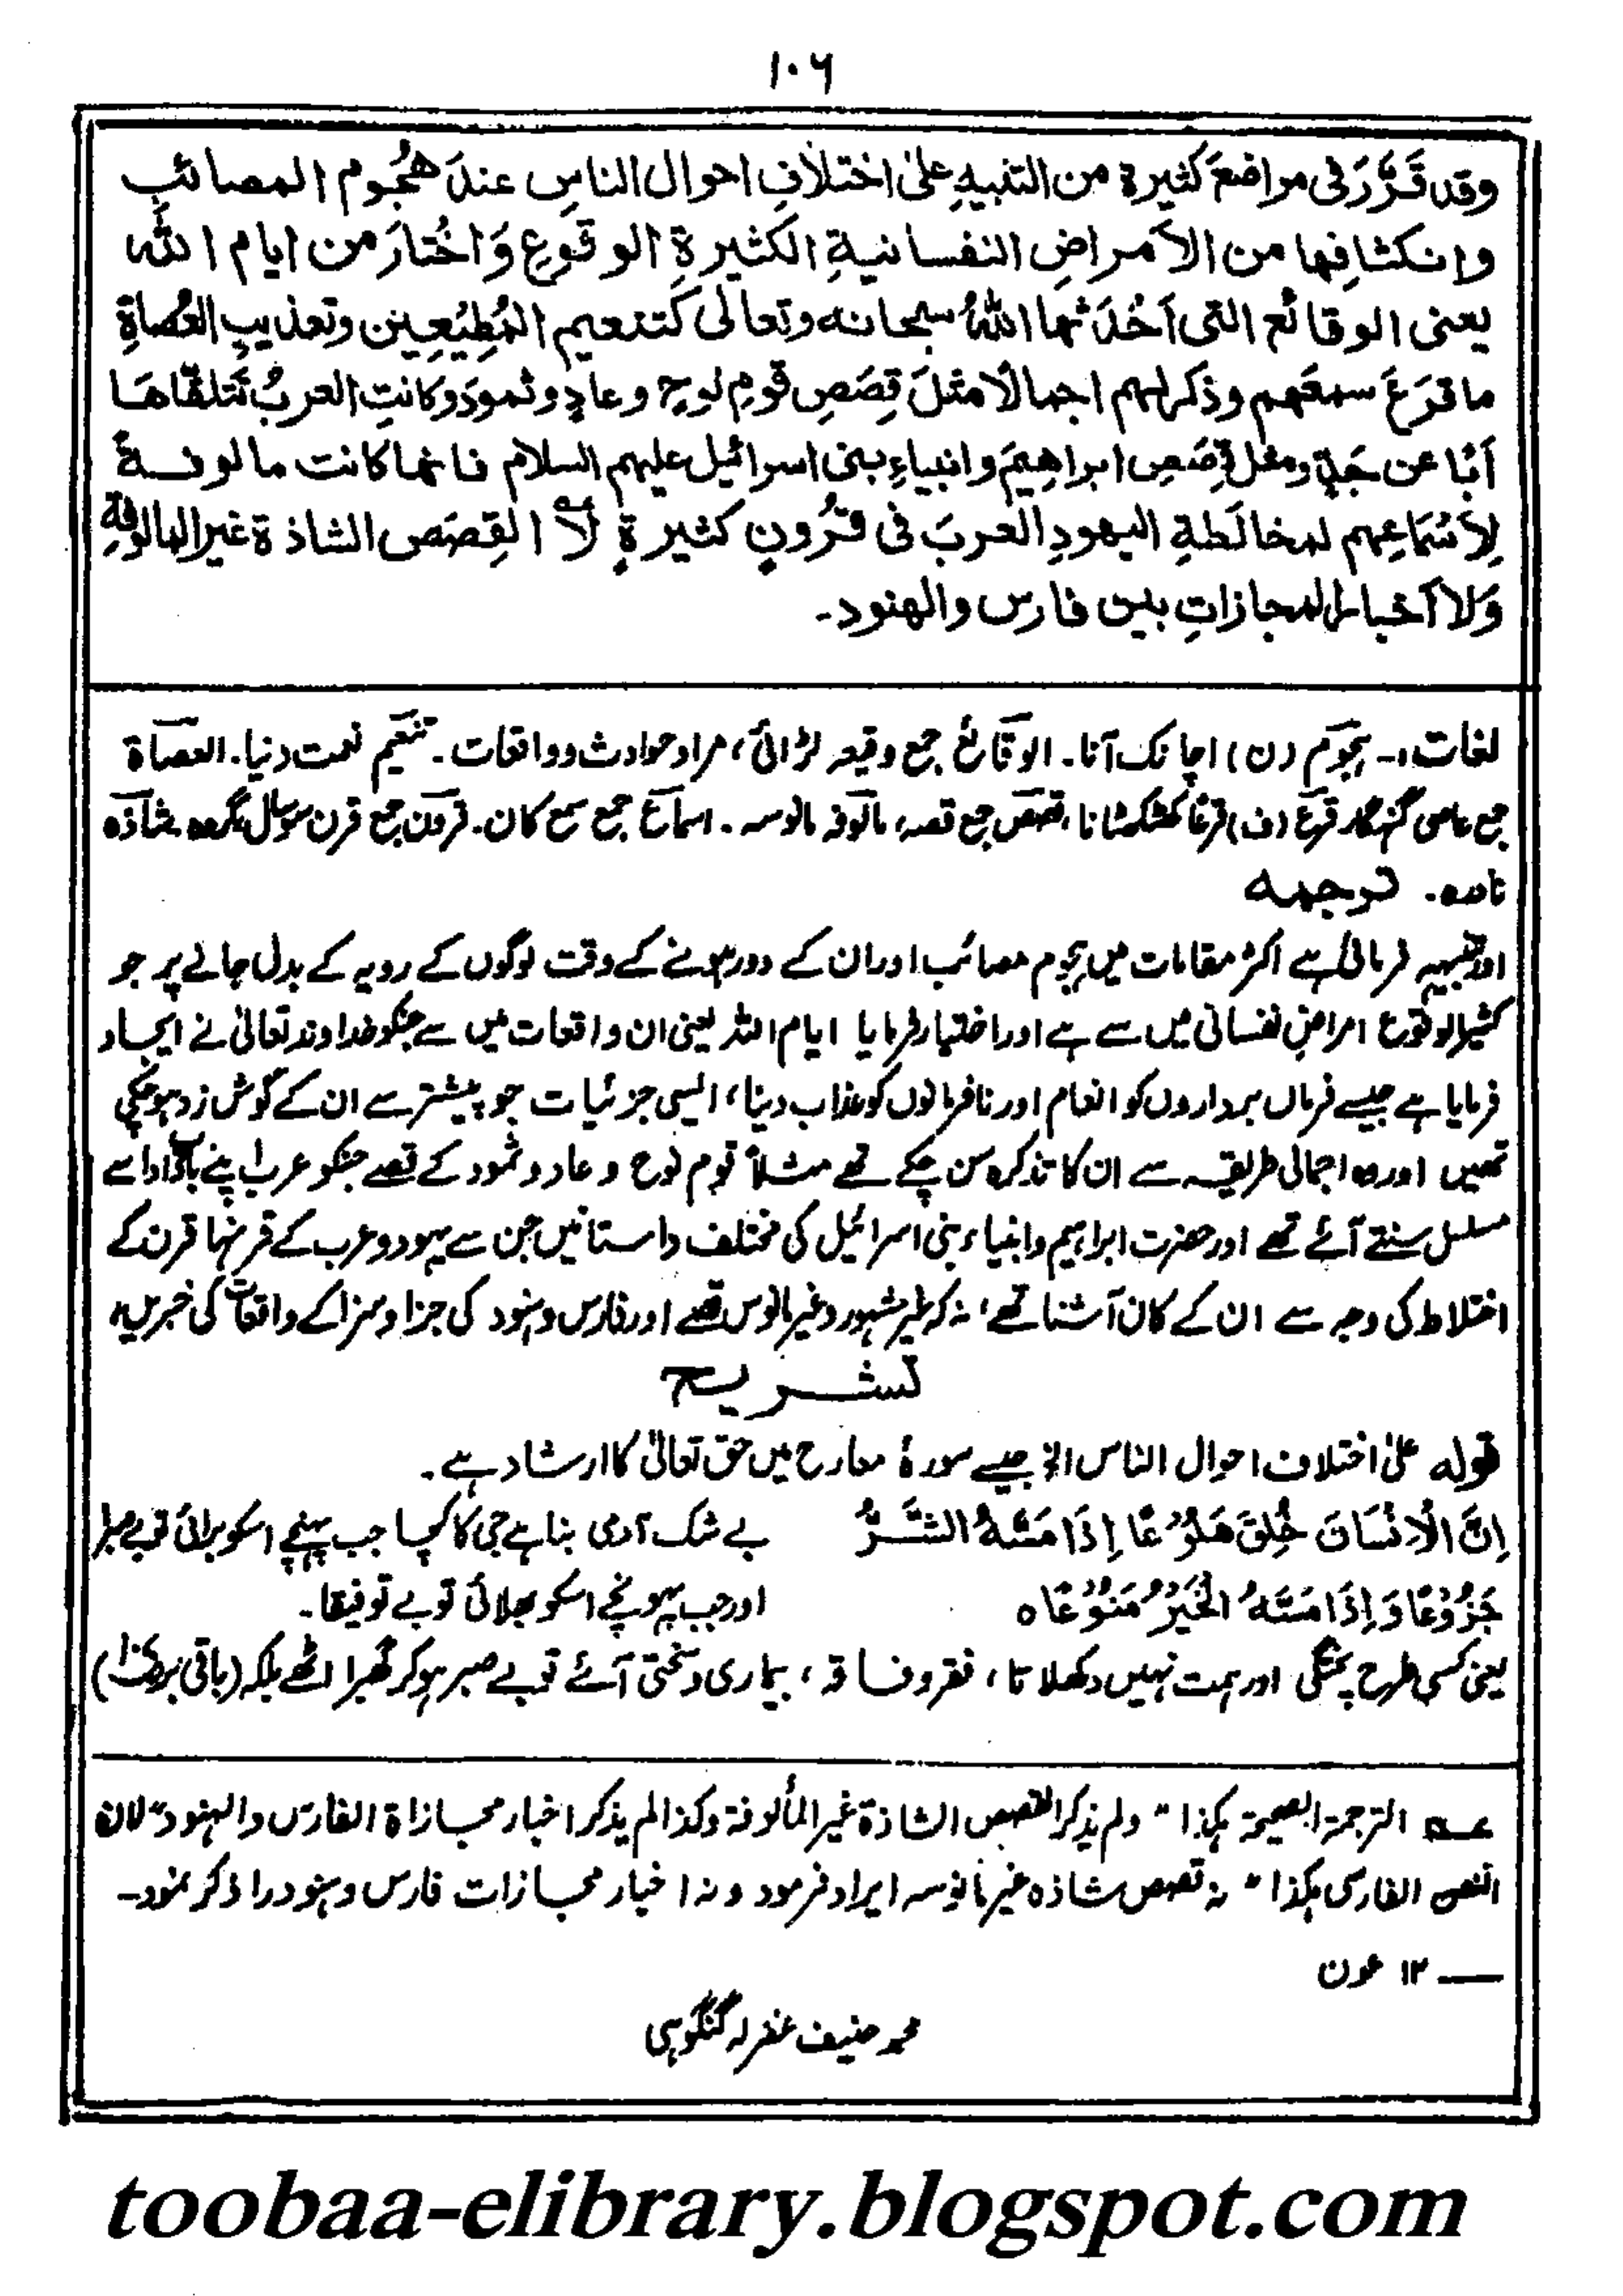 ۱۰۶
وقد قَرَّرَ فی مواضعَ کثیرة من التنبیهِ علیٰ اختلافِ احوال الناسِ عندَ هُجُومِ المصائبِ
وانکشافِها من الاَمراضِ النفسانیةِ الکثیرةِ الوقوعِ وَاخْتارَ من ایام اللّٰه
یعنی الوقائعَ التی اَحْدَثها اللّٰهُ سبحانه وتعالیٰ کتنعیمِ المُطِیْعِین وتعذیبِ العُصاةِ
ما قَرَعَ سمعَهم وذکر لهم اجمالًا مثلَ قِصَصِ قومِ نوحٍ وعادٍ وثمودَ وکانتِ العربُ تَتلقّاهَا
اَبًا عن جَدٍ ومثل قِصَصِ ابراهیمَ وانبیاءِ بنی اسرائیل علیهم السلام فانها کانت مالوفةً
لِاَسْمَاعِهم لمخالَطةِ الیهودِ العربَ فی قُرُونٍ کثیرةٍ لَا عـه القِصَص الشاذة غیر المالوفةِ
وَلا اَخبار المجازاتِ بین فارس والهنود۔
لغات:۔ ہجوم (ن) اچانک آنا۔ الوقائع جمع وقیعہ لڑائی، مراد حوادث وواقعات۔ تنعیم نعمت دنیا۔ العصاۃ
جمع عاصی گنہگار قرع (ف) قرعًا کھٹکھٹانا، قصص جمع قصہ، مالوفہ مانوسہ۔ اسماع جمع سمع کان۔ قرون جمع قرن سوسال، گروہ۔ شاذہ
نادرہ۔ ترجمہ
اور تنبیہ فرمائی ہے اکثر مقامات میں ہجوم مصائب اور ان کے دور ہونے کے وقت لوگوں کے رویہ کے بدل جانے پر جو
کثیر الوقوع امراضِ نفسانی میں سے ہے اور اختیار فرمایا ایام اللہ یعنی ان واقعات میں سے جنکو خداوند تعالیٰ نے ایجاد
فرمایا ہے جیسے فرماں برداروں کو انعام اور نافرمانوں کو عذاب دینا، ایسی جزئیات جو پیشتر سے ان کے گوش زد ہوچکی
تھیں اور وہ اجمالی طریقہ سے ان کا تذکرہ سن چکے تھے مثلاً قوم نوح و عاد و ثمود کے قصے جنکو عرب اپنے باپ دادا سے
مسلسل سنتے آئے تھے اور حضرت ابراہیم وانبیاء بنی اسرائیل کی مختلف داستانیں جن سے یہود وعرب کے قرنہا قرن کے
اختلاط کی وجہ سے ان کے کان آشنا تھے، نہ کہ غیر مشہور وغیر مانوس قصے اور فارس وہنود کی جزا وسزا کے واقعات کی خبریں،
تشریح
قولہ علیٰ اختلاف احوال الناس الخ جیسے سورۂ معارج میں حق تعالیٰ کا ارشاد ہے۔
اِنَّ الْاِنْسَانَ خُلِقَ هَلُوْعًا اِذَا مَسَّهُ الشَّرُّ بے شک آدمی بنا ہے جی کا کچا جب پہنچے اسکو برائی تو بے صبرا
جَزُوْعًا وَاِذَا مَسَّهُ الْخَیْرُ مَنُوْعًا ہ اور جب پہونچے اسکو بھلائی تو بے توفیقا۔
یعنی کسی طرح پختگی اور ہمت نہیں دکھلاتا، فقر وفاقہ، بیماری وسختی آئے تو بے صبر ہوکر گھبرا اٹھے بلکہ (باقی بر
عــہ الترجمۃ الصحیحۃ ہکذا "ولم یذکر القصص الشاذۃ غیر المألوفۃ وکذا لم یذکر اخبار مجازاۃ الفارس والہنود" لان
النص الفارسی ہکذا "نہ قصص شاذہ غیر مانوسہ ایراد فرمود ونہ اخبار مجازات فارس وہنود را ذکر نمود۔
— ۱۲ عون
محمد حنیف غفرلہ گنگوہی
toobaa-elibrary.blogspot.com